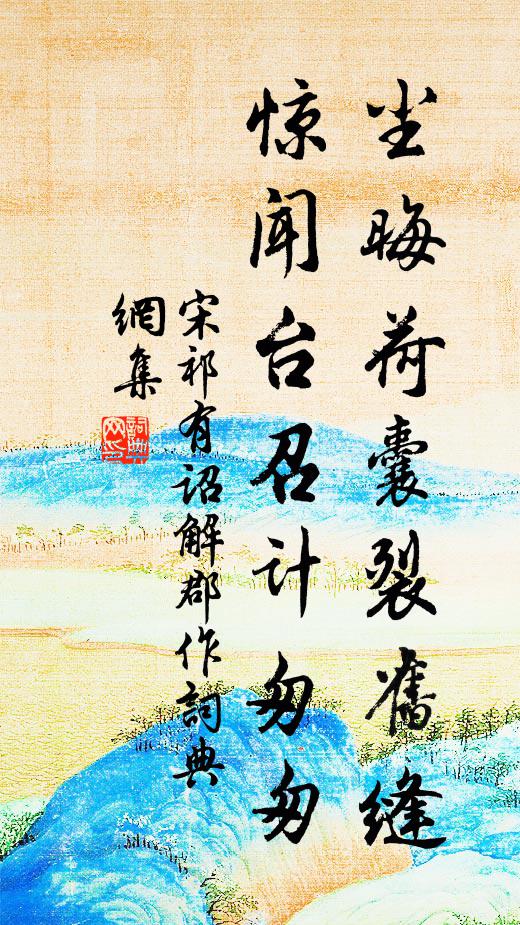 尘晦荷囊裂旧缝
惊闻台召计匆匆
宋祁有诏解郡作词典
網集